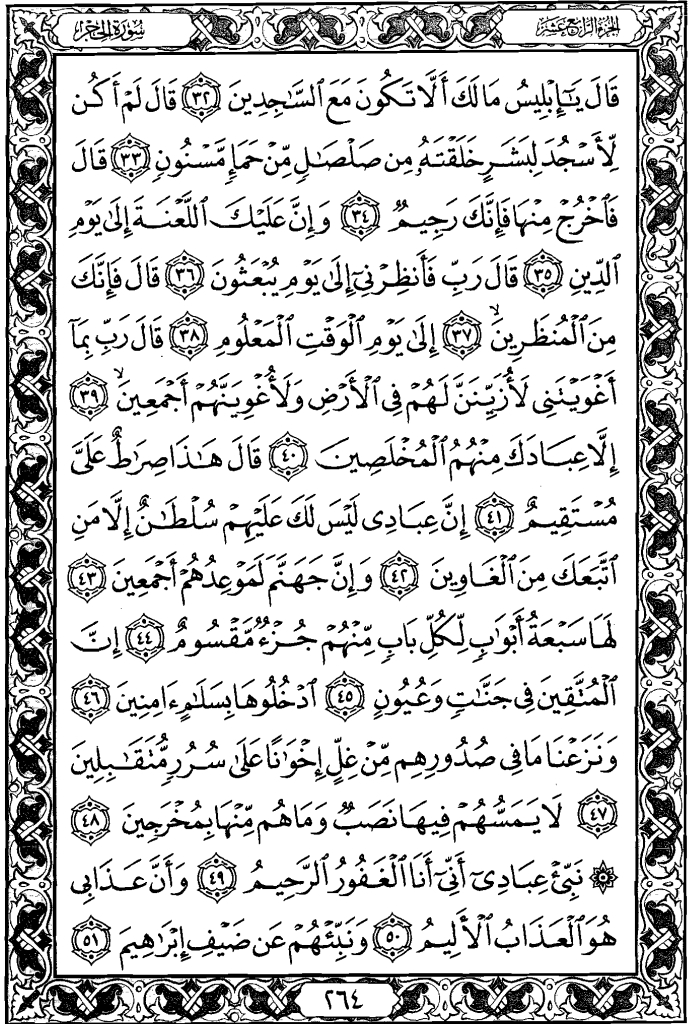 الجزء الرابع عشر
سورة الحجر
قَالَ يَٰٓإِبْلِيسُ مَا لَكَ أَلَّا تَكُونَ مَعَ ٱلسَّٰجِدِينَ ٣٢ قَالَ لَمْ أَكُن
لِّأَسْجُدَ لِبَشَرٍ خَلَقْتَهُۥ مِن صَلْصَٰلٍ مِّنْ حَمَإٍ مَّسْنُونٍ ٣٣ قَالَ
فَٱخْرُجْ مِنْهَا فَإِنَّكَ رَجِيمٌ ٣٤ وَإِنَّ عَلَيْكَ ٱللَّعْنَةَ إِلَىٰ يَوْمِ
ٱلدِّينِ ٣٥ قَالَ رَبِّ فَأَنظِرْنِىٓ إِلَىٰ يَوْمِ يُبْعَثُونَ ٣٦ قَالَ فَإِنَّكَ
مِنَ ٱلْمُنظَرِينَ ۙ ٣٧ إِلَىٰ يَوْمِ ٱلْوَقْتِ ٱلْمَعْلُومِ ٣٨ قَالَ رَبِّ بِمَآ
أَغْوَيْتَنِى لَأُزَيِّنَنَّ لَهُمْ فِى ٱلْأَرْضِ وَلَأُغْوِيَنَّهُمْ أَجْمَعِينَ ۙ ٣٩
إِلَّا عِبَادَكَ مِنْهُمُ ٱلْمُخْلَصِينَ ٤٠ قَالَ هَٰذَا صِرَٰطٌ عَلَىَّ
مُسْتَقِيمٌ ٤١ إِنَّ عِبَادِى لَيْسَ لَكَ عَلَيْهِمْ سُلْطَٰنٌ إِلَّا مَنِ
ٱتَّبَعَكَ مِنَ ٱلْغَاوِينَ ٤٢ وَإِنَّ جَهَنَّمَ لَمَوْعِدُهُمْ أَجْمَعِينَ ٤٣
لَهَا سَبْعَةُ أَبْوَٰبٍ لِّكُلِّ بَابٍ مِّنْهُمْ جُزْءٌ مَّقْسُومٌ ٤٤ إِنَّ
ٱلْمُتَّقِينَ فِى جَنَّٰتٍ وَعُيُونٍ ٤٥ ٱدْخُلُوهَا بِسَلَٰمٍ ءَامِنِينَ ٤٦
وَنَزَعْنَا مَا فِى صُدُورِهِم مِّنْ غِلٍّ إِخْوَٰنًا عَلَىٰ سُرُرٍ مُّتَقَٰبِلِينَ
٤٧ لَا يَمَسُّهُمْ فِيهَا نَصَبٌ وَمَا هُم مِّنْهَا بِمُخْرَجِينَ ٤٨
۞ نَبِّئْ عِبَادِىٓ أَنِّىٓ أَنَا ٱلْغَفُورُ ٱلرَّحِيمُ ٤٩ وَأَنَّ عَذَابِى
هُوَ ٱلْعَذَابُ ٱلْأَلِيمُ ٥٠ وَنَبِّئْهُمْ عَن ضَيْفِ إِبْرَٰهِيمَ ٥١
٢٦٤